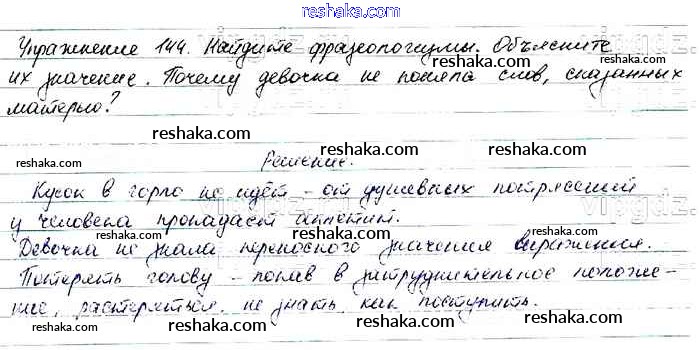 reshaka.com
Упражнение 144. Найдите фразеологизмы. Объясните
их значение. Почему девочка не поняла слов, сказанных
матерью?
reshaka.com reshaka.com
reshaka.com Решение. reshaka.com
Кусок в горло не идёт - от душевных потрясений
у человека пропадает аппетит.
reshaka.com reshaka.com reshaka.com
Девочка не знала переносного значения выражения.
Потерять голову - попав в затруднительное положе-
ние, растеряться, не знать, как поступить.
reshaka.com reshaka.com reshaka.com